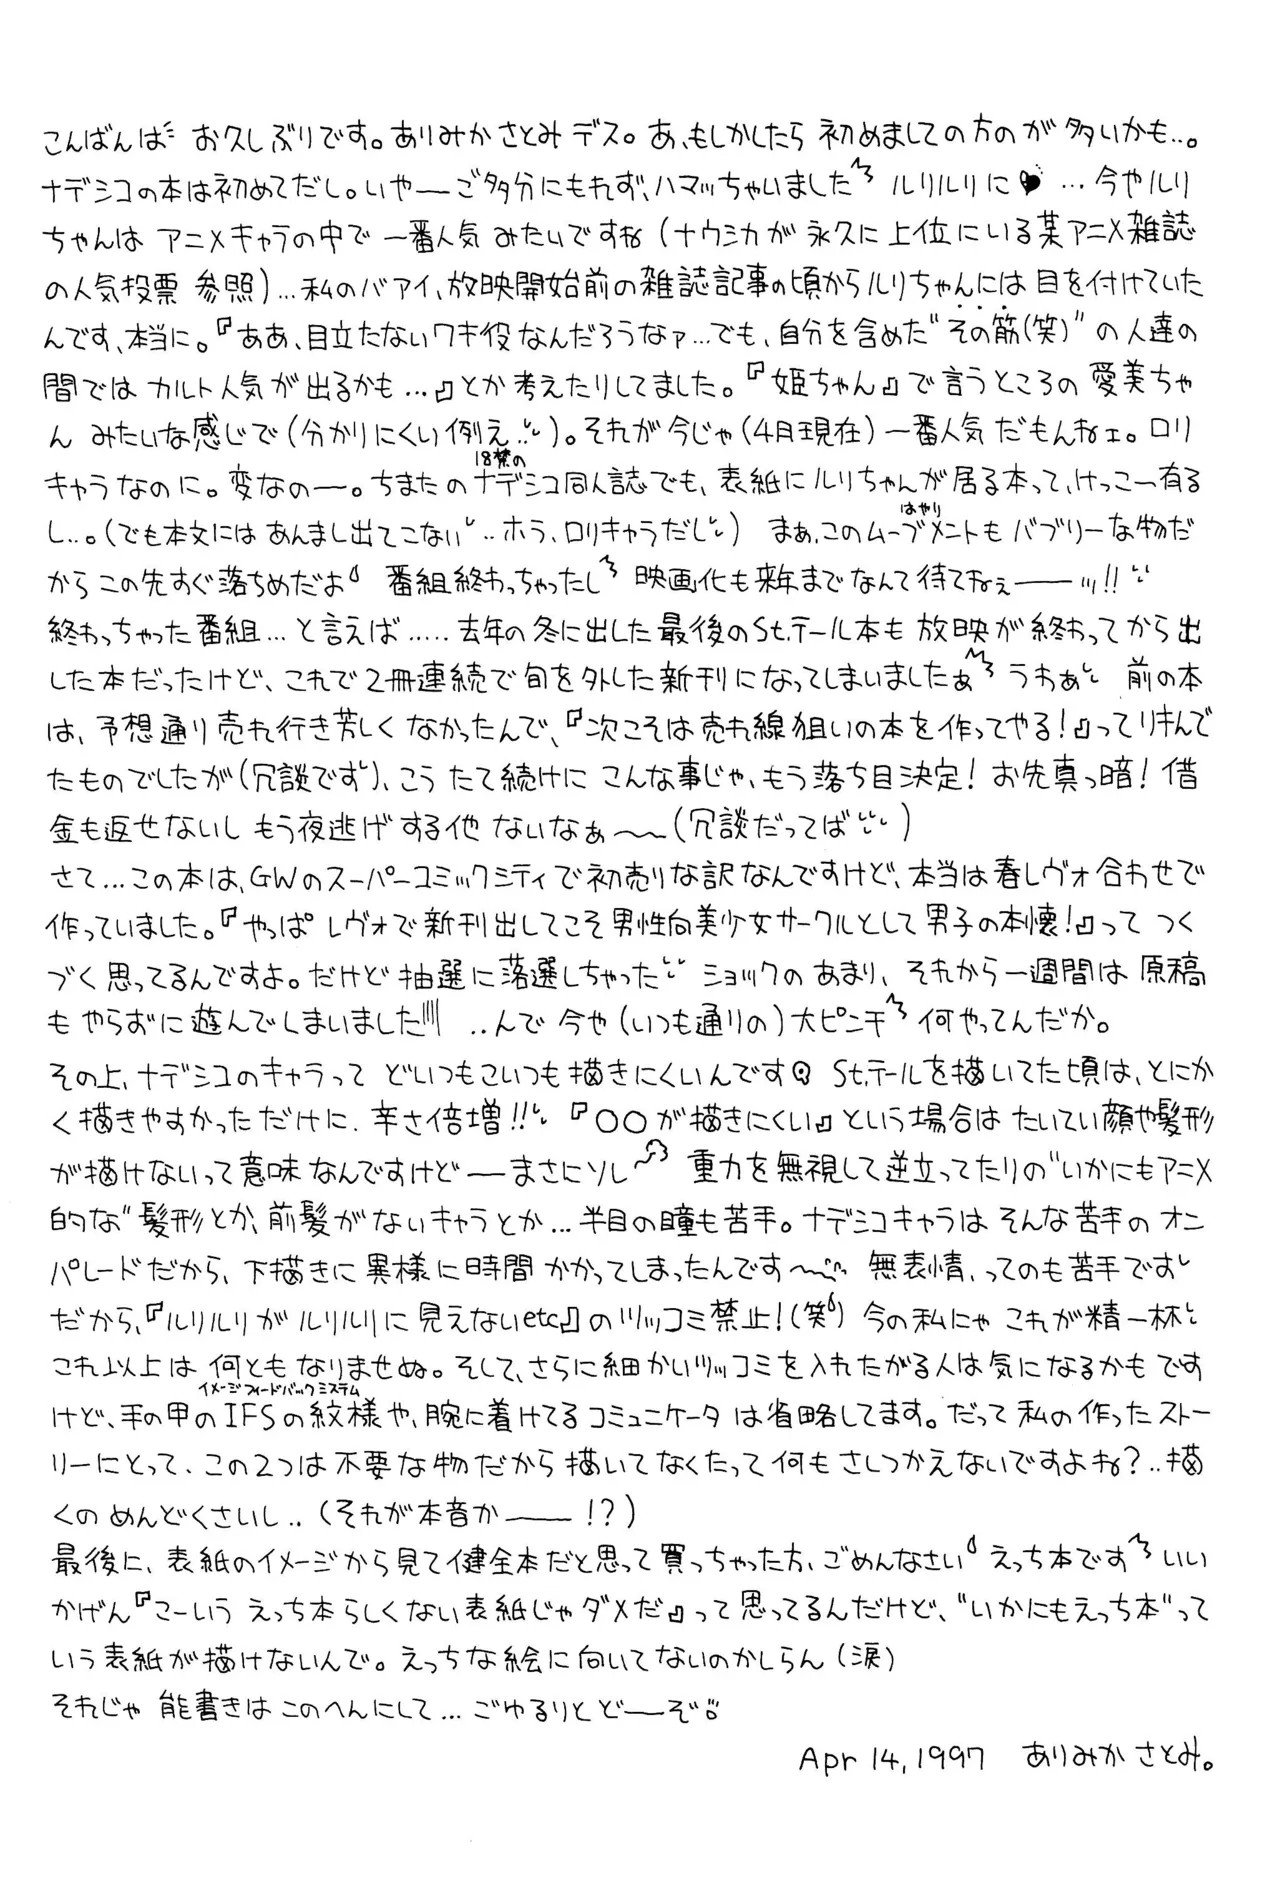 こんばんは お久しぶりです。ありみかさとみデス。あ、もしかしたら 初めましての方のが多いかも…。
ナデシコの本は初めてだし。いやーご多分にもれず、ハマッちゃいました ルリルリに♥ …今やルリ
ちゃんは アニメキャラの中で 一番人気 みたいですね (ナウシカが 永久に上位にいる某アニメ雑誌
の人気投票 参照)…私のバアイ、放映開始前の雑誌記事の頃からルリちゃんには目を付けていた
んです、本当に。『ああ、目立たないワキ役なんだろうなァ…でも、自分を含めた“その筋(笑)”の人達の
間では カルト人気が出るかも…』とか考えたりしてました。『姫ちゃん』で言うところの 愛美ちゃ
ん みたいな感じで(分かりにくい例え‥)。それが今じゃ(4月現在)一番人気だもんねェ。ロリ
キャラなのに。変なのー。ちまたの18禁のナデシコ同人誌でも、表紙にルリちゃんが居る本って、けっこー有る
し‥。(でも本文にはあんまし出てこない‥ホラ、ロリキャラだし) まぁ、このムーブメント(はやり)もバブリーな物だ
からこの先すぐ落ちめだよ 番組終わっちゃったし 映画化も来年までなんて待てねぇーーッ!!
終わっちゃった番組…と言えば‥‥‥去年の冬に出した最後のSt.テール本も 放映が終わってから出
した本だったけど、これで2冊連続で旬を外した新刊になってしまいましたぁ うわぁ 前の本
は、予想通り売れ行き芳しくなかったんで、『次こそは売れ線狙いの本を作ってやる!』ってリキんで
たものでしたが(冗談です)、こう たて続けに こんな事じゃ、もう落ち目決定! お先真っ暗! 借
金も返せないし もう夜逃げする他 ないなぁ〜〜(冗談だってば)
さて…この本は、GWのスーパーコミックシティで初売りな訳なんですけど、本当は春レヴォ合わせで
作っていました。『やっぱ レヴォで新刊出してこそ男性向美少女サークルとして男子の本懐!』って つく
づく思ってるんですよ。だけど抽選に落選しちゃった ショックのあまり、それから一週間は 原稿
も やらずに遊んでしまいました ‥んで 今や(いつも通りの)大ピンチ 何やってんだか。
その上、ナデシコのキャラって どいつもこいつも描きにくいんです St.テールを描いてた頃は、とにか
く描きやすかっただけに、辛さ倍増!! 『○○が描きにくい』という場合は たいてい顔や髪形
が描けないって意味なんですけどーまさにソレ 重力を無視して逆立ってたりの“いかにもアニメ
的な”髪形とか、前髪がないキャラとか…半目の瞳も苦手。ナデシコキャラは そんな苦手の オン
パレードだから、下描きに異様に時間かかってしまったんです〜 無表情、ってのも苦手です
だから、『ルリルリがルリルリに見えないetc』のツッコミ禁止!(笑) 今の私にゃ これが精一杯
これ以上は 何ともなりませぬ。そして、さらに細かいツッコミを入れたがる人は気になるかもです
けど、手の甲のIFS(イメージフィードバックシステム)の紋様や、腕に着けてるコミュニケータは省略してます。だって私の作ったストー
リーにとって、この2つは不要な物だから描いてなくたって何もさしつかえないですよね?‥描
くの めんどくさいし‥ (それが本音かーー!?)
最後に、表紙のイメージから見て健全本だと思って買っちゃった方、ごめんなさい えっち本です いい
かげん『こーいう えっち本らしくない表紙じゃダメだ』って思ってるんだけど、“いかにもえっち本”って
いう表紙が描けないんで。えっちな絵に向いてないのかしらん(涙)
それじゃ 能書きはこのへんにして…ごゆるりと どーぞ
Apr 14,1997 ありみかさとみ。